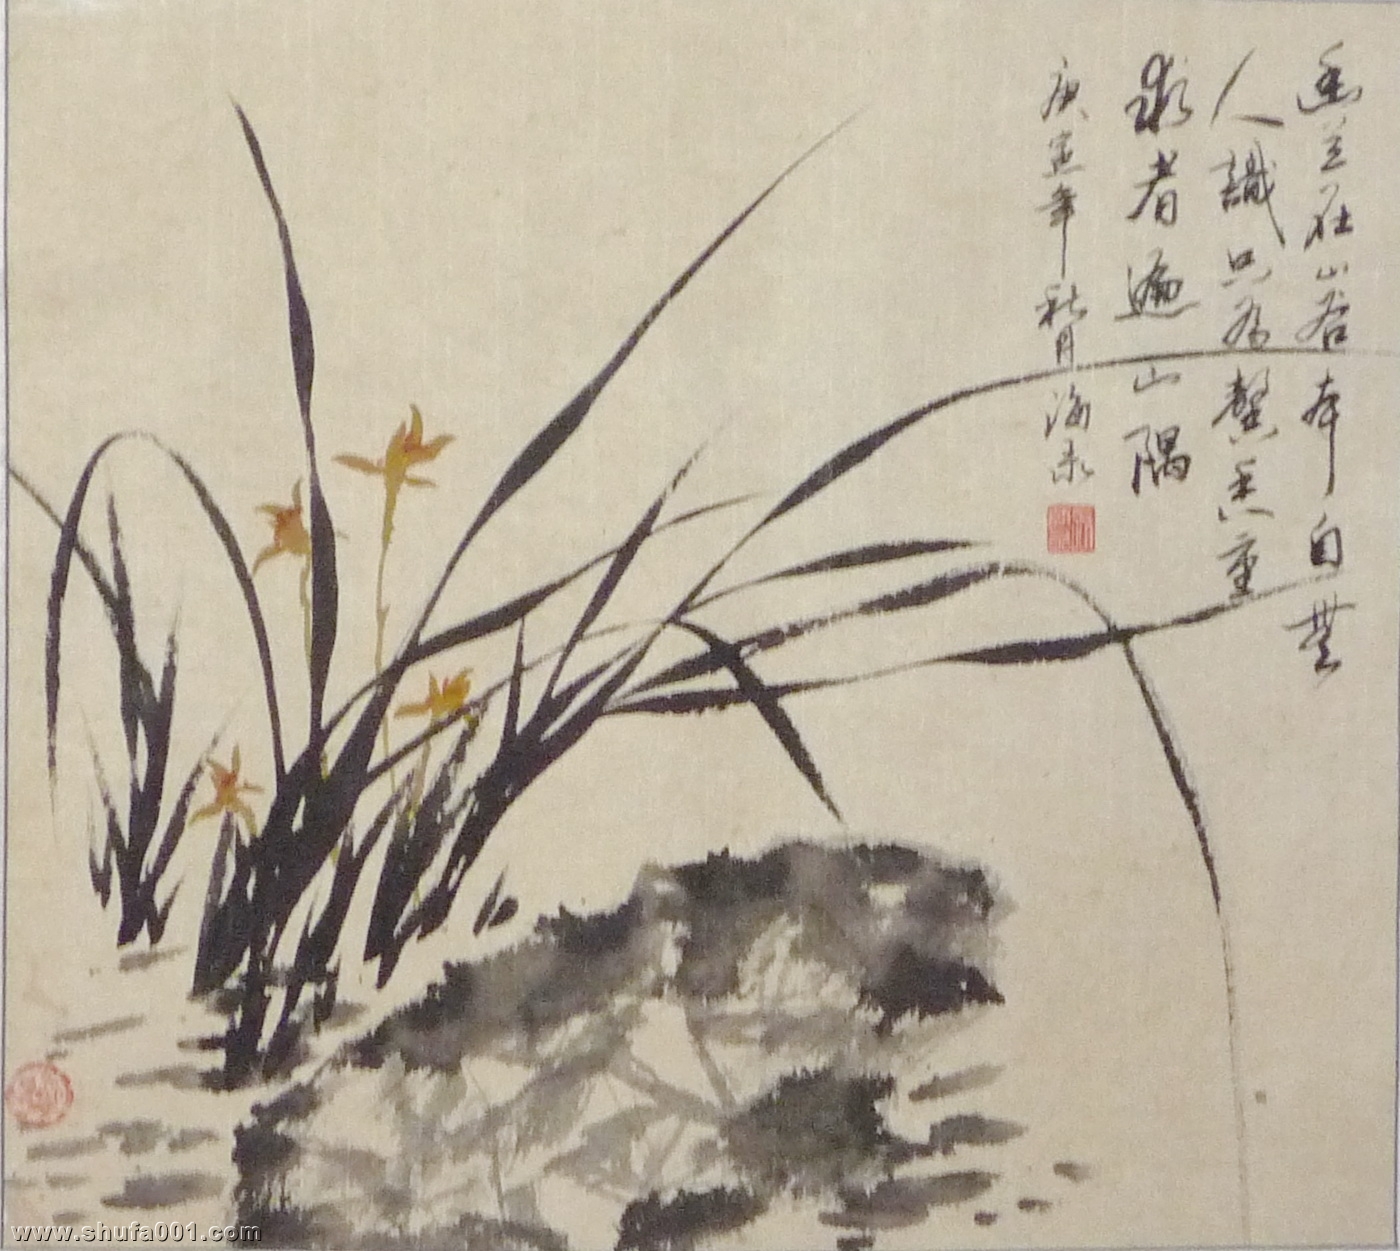 幽兰在山谷本自無
人識只为馨香重
求者遍山隅
庚寅年秋月海
www.shufa001.com